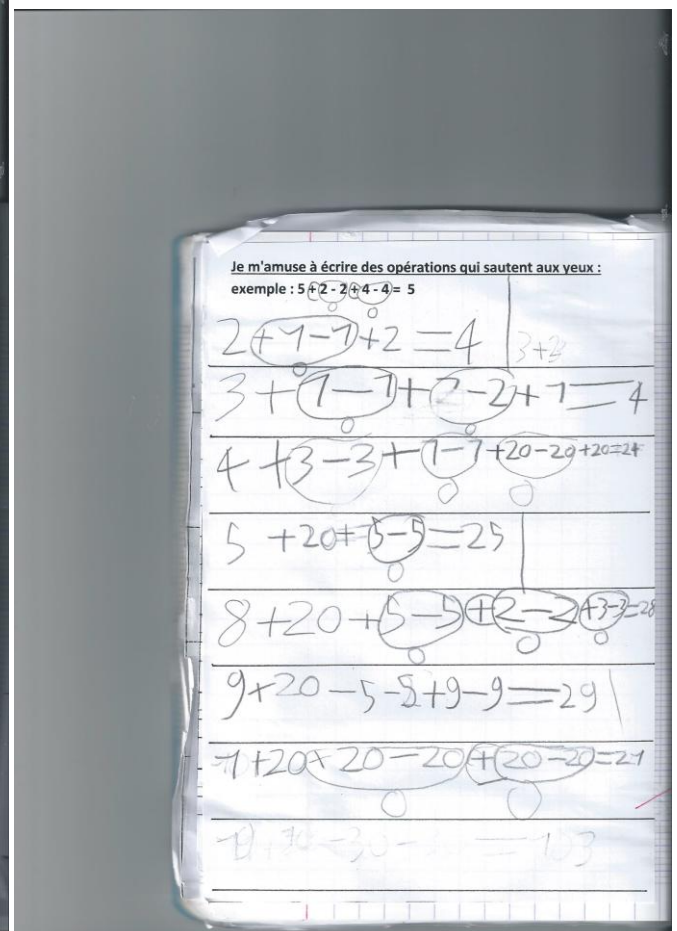 Je m'amuse à écrire des opérations qui sautent aux yeux :
exemple : 5 + 2 - 2 + 4 - 4 = 5
0 0
2 + 1 - 1 + 2 = 4
3 + 2
0
3 + 1 - 1 + 2 - 2 + 1 = 4
0 0
4 + 3 - 3 + 1 - 1 + 20 - 20 + 20 = 24
0 0
5 + 20 + 5 - 5 = 25
0
8 + 20 + 5 - 5 + 2 - 2 + 3 - 3 = 28
0 0 0
9 + 20 - 5 - 5 + 9 - 9 = 29
1 + 20 + 20 - 20 + 20 - 20 = 21
0 0